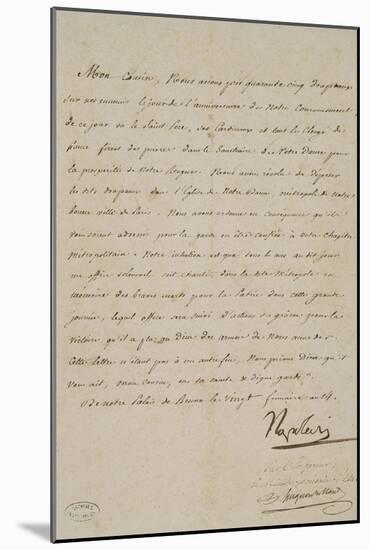 Mon Cousin, Nous avons pris quarante cinq drapeaux
sur nos ennemis le jour de l'anniversaire de Notre Couronnement
de ce jour où le Saint Père, ses Cardinaux et tout le Clergé de
france firent des prieres dans le Sanctuaire de Notre Dame pour
la prosperité de Notre Regne. Nous avons résolu de déposer
les dits drapeaux dans l'Eglise de Notre Dame, métropole de Notre
bonne ville de Paris. Nous avons ordonné en conséquence qu'ils
vous soient adressés pour la garde en être confiée à votre Chapitre
Métropolitain. Notre intention est que tous les ans au dit jour
un office solemnel soit chanté dans la dite Métropole en
mémoire des braves morts pour la Patrie dans cette grande
journée, lequel office sera suivi d'actions de grâces pour la
victoire qu'il a plu au Dieu des armées de Nous
Cette lettre n'étant pas à une autre fin, Nous prions Dieu qu'il
vous ait, mon cousin, en sa sainte & digne garde.
De notre Palais de Brunn le Vingt frimaire an 14.
Napoleon
Par l'Empereur